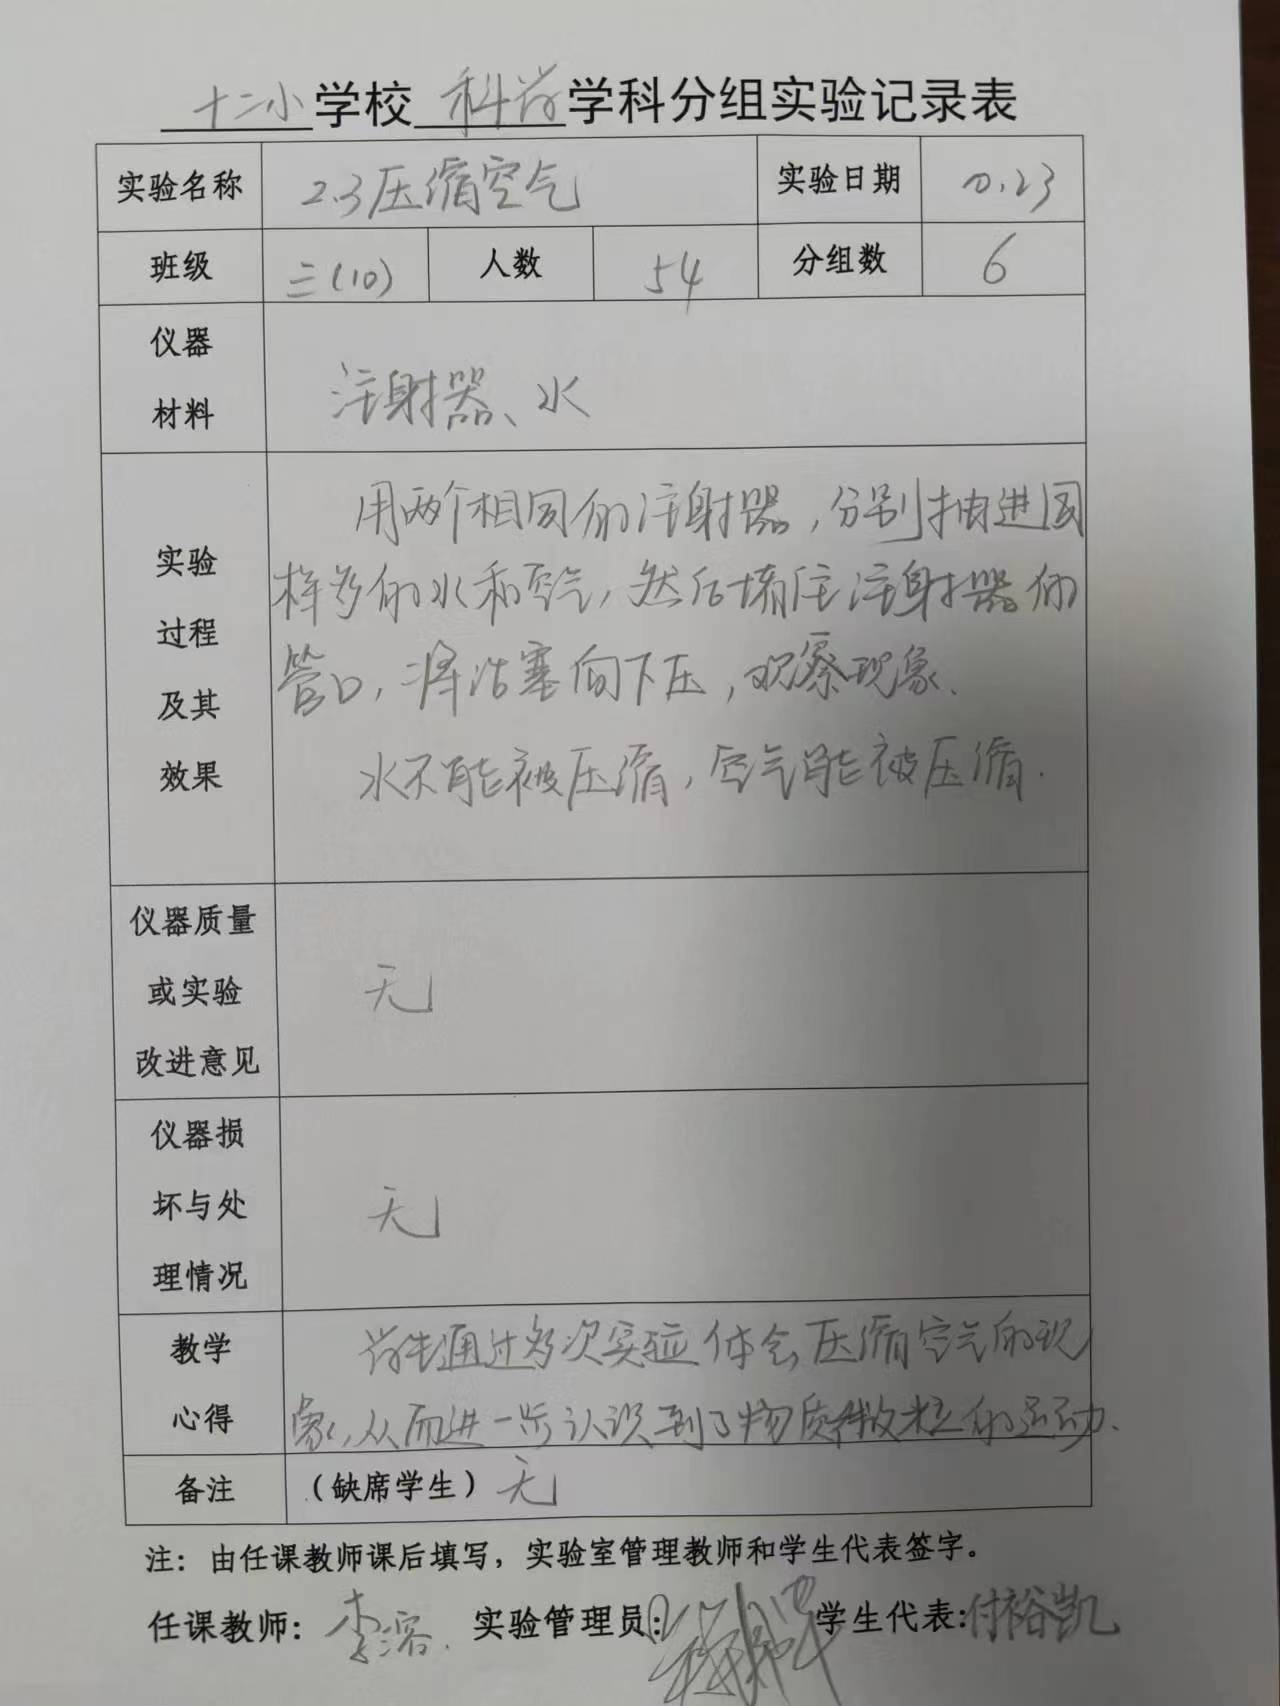 十二小学校 科学学科分组实验记录表
实验名称 2.3压缩空气 实验日期
班级 三(10) 人数 54 分组数 6
仪器
材料
注射器、水
实验
过程
及其
效果
用两个相同的注射器,分别抽进同
样多的水和空气,然后堵住注射器的
管口,将活塞向下压,观察现象.
水不能被压缩,空气能被压缩.
仪器质量
或实验
改进意见
无
仪器损
坏与处
理情况
无
教学
心得
学生通过多次实验体会压缩空气的现
象,从而进一步认识到了物质微粒的运动.
备注 (缺席学生) 无
注:由任课教师课后填写,实验室管理教师和学生代表签字。
任课教师: 李溶. 实验管理员: 学生代表:付裕凯